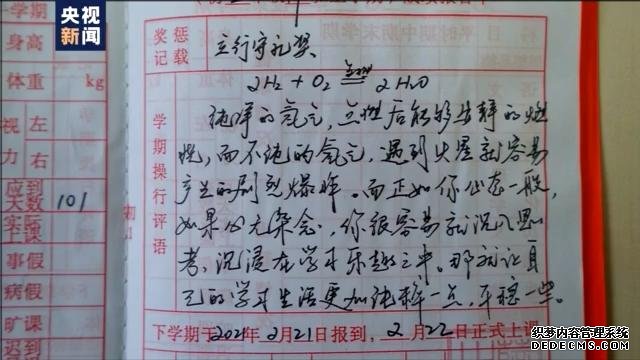 央视新闻
身高
体重 kg
视力 左 右
应到天数 101
实际上课
事假
病假
旷课
迟到
奖惩记载
立行守礼奖
学期操行评语
2H₂ + O₂ 点燃 2H₂O
纯净的氢气，点燃后能够安静的燃
烧，而不纯的氢气，遇到火星就容易
产生的剧烈爆炸。而正如你心态一般，
如果心无杂念，你很容易就沉入思
考，沉浸在学习乐趣之中。那就让自
己的学习生活更加纯粹一点，平稳一些。
下学期于2021年2月21日报到，2月22日正式上课